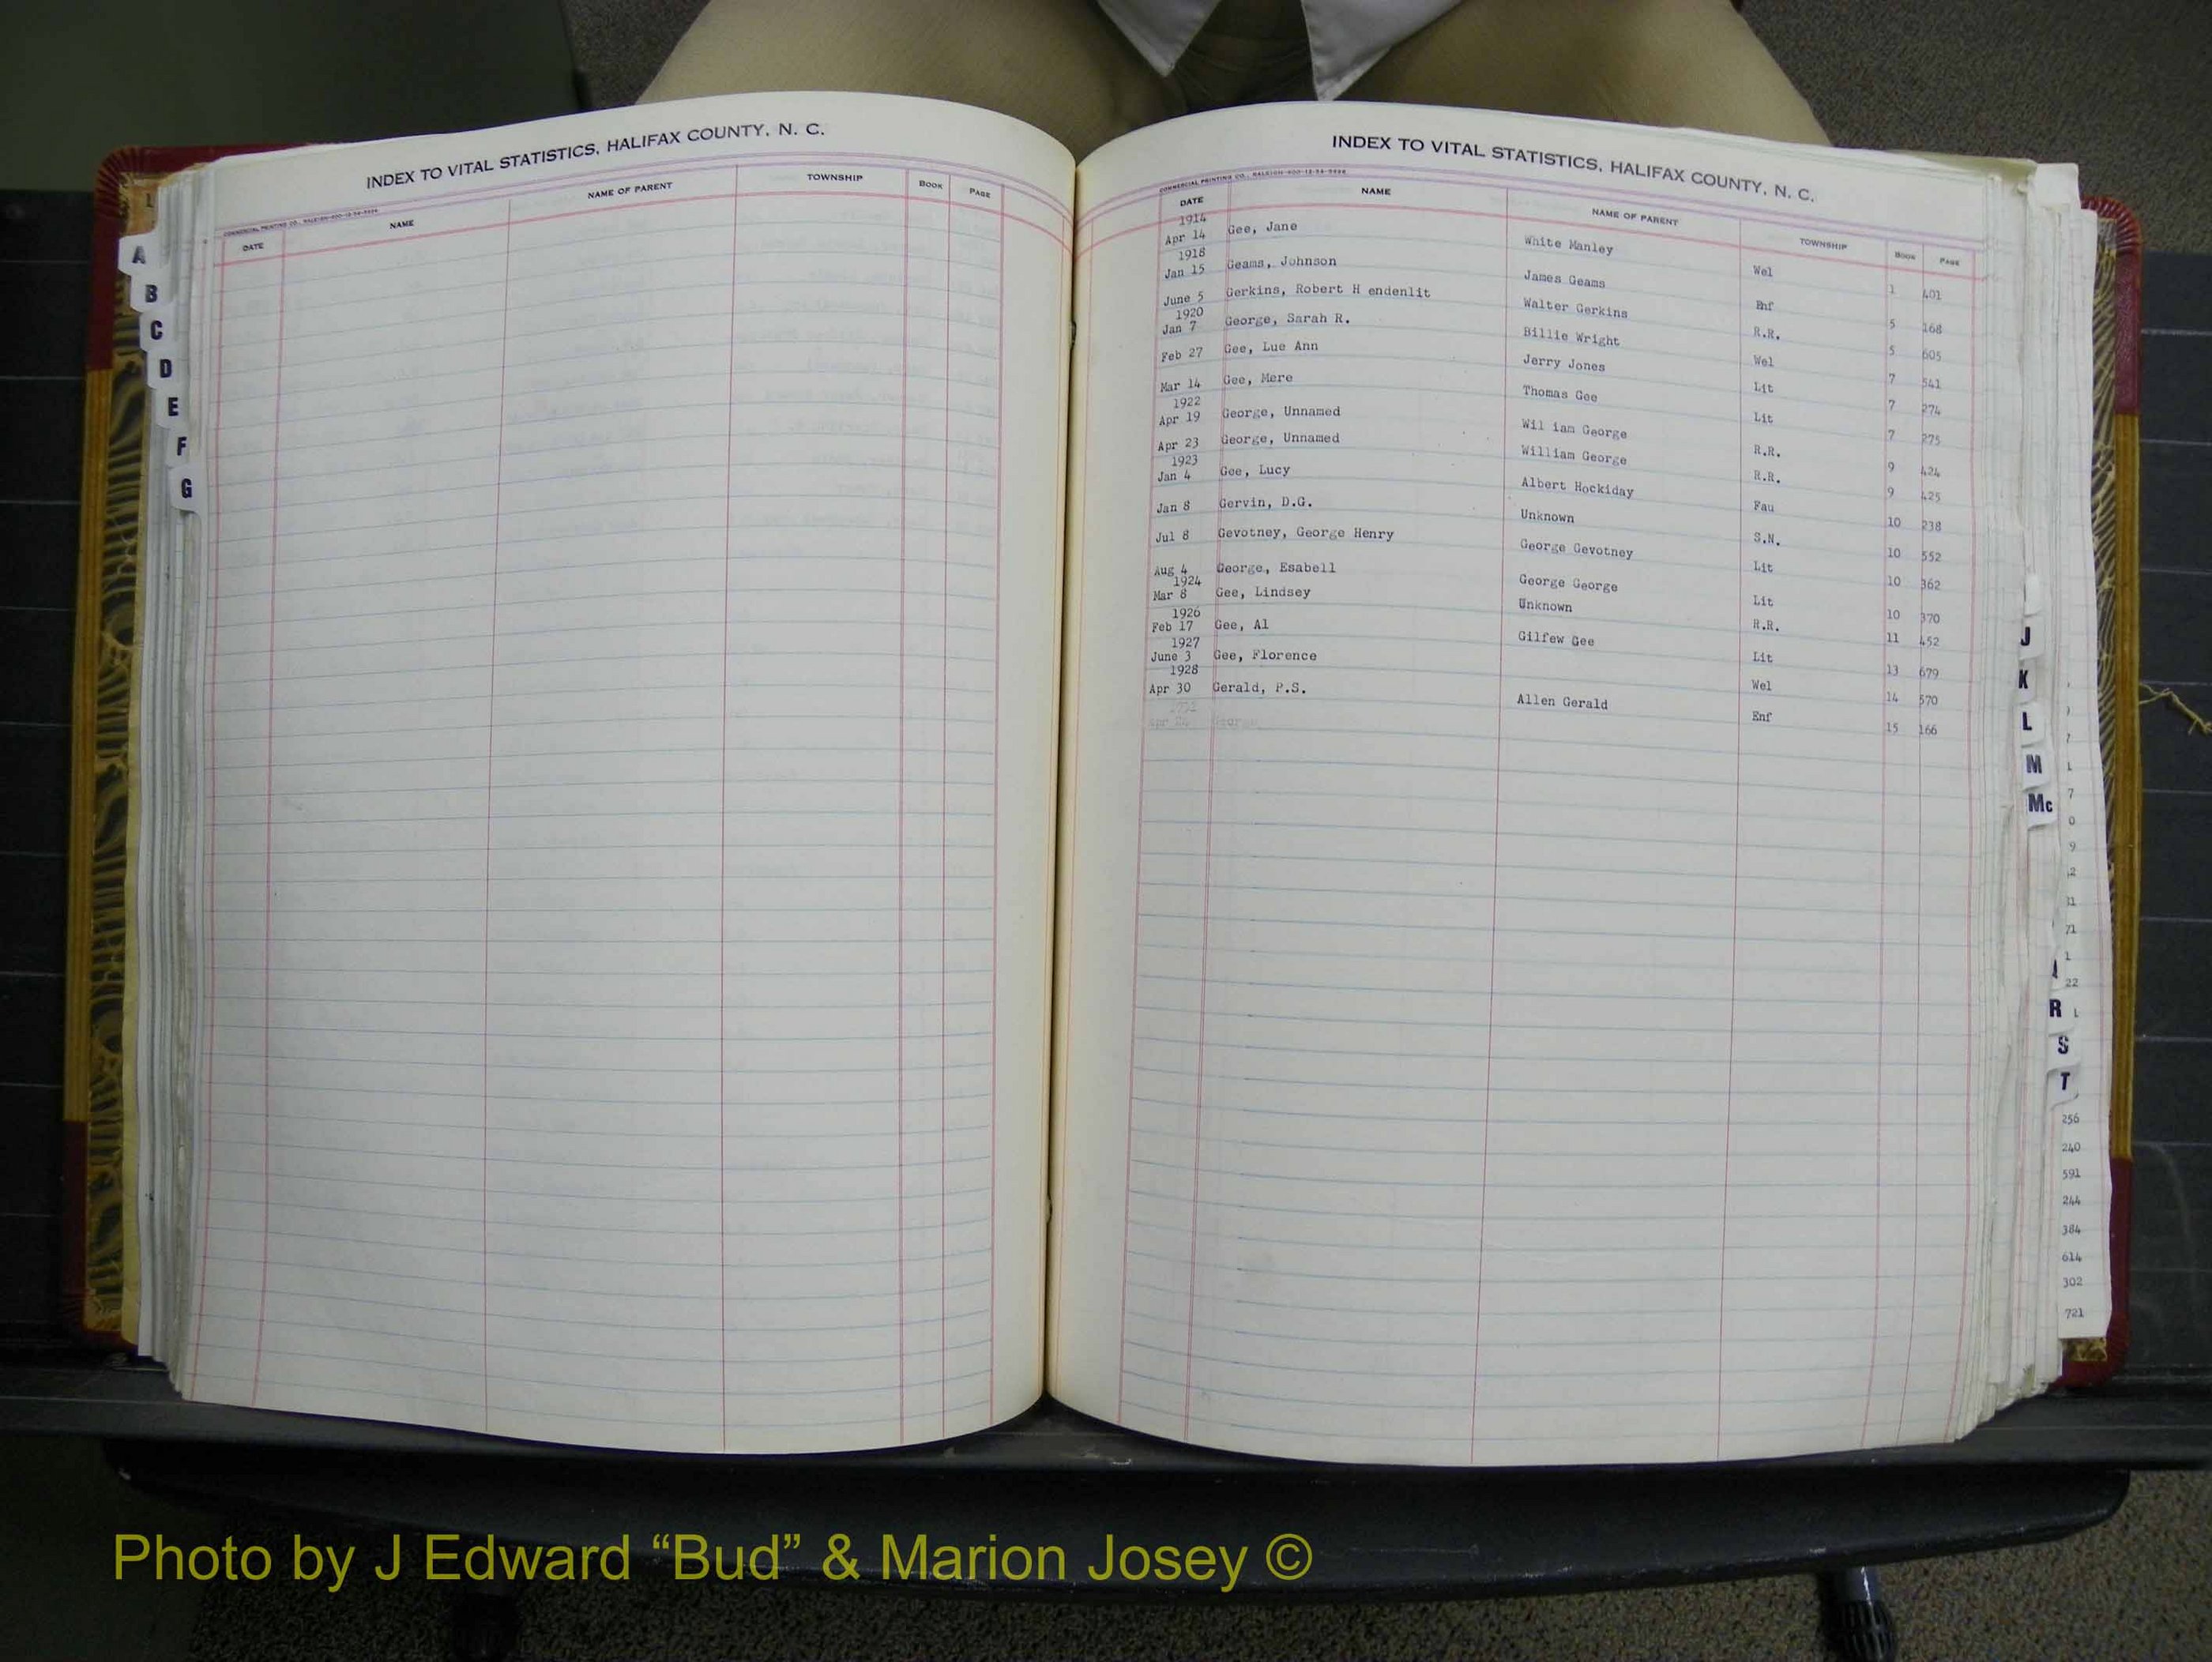 INDEX TO VITAL STATISTICS, HALIFAX COUNTY, N. C.
COMMERCIAL PRINTING CO., RALEIGH
DATE NAME NAME OF PARENT TOWNSHIP BOOK PAGE
A
B
C
D
E
F
G
INDEX TO VITAL STATISTICS, HALIFAX COUNTY, N. C.
COMMERCIAL PRINTING CO., RALEIGH
DATE NAME NAME OF PARENT TOWNSHIP BOOK PAGE
1914
Apr 14 Gee, Jane White Manley Wel 1 401
1918
Jan 15 Geams, Johnson James Geams Enf 5 168
June 5 Gerkins, Robert H endenlit Walter Gerkins R.R. 5 605
1920
Jan 7 George, Sarah R. Billie Wright Wel 7 541
Feb 27 Gee, Lue Ann Jerry Jones Lit 7 274
Mar 14 Gee, Mere Thomas Gee Lit 7 275
1922
Apr 19 George, Unnamed Wil iam George R.R. 9 424
Apr 23 George, Unnamed William George R.R. 9 425
1923
Jan 4 Gee, Lucy Albert Hockiday Fau 10 238
Jan 8 Gervin, D.G. Unknown S.N. 10 552
Jul 8 Gevotney, George Henry George Gevotney Lit 10 362
Aug 4 George, Esabell George George Lit 10 370
1924
Mar 8 Gee, Lindsey Unknown R.R. 11 452
1926
Feb 17 Gee, Al Gilfew Gee Lit 13 679
1927
June 3 Gee, Florence Wel 14 570
1928
Apr 30 Gerald, P.S. Allen Gerald Enf 15 166
George
J
K
L
M
Mc
R
S
T
256
240
591
244
384
614
302
721
Photo by J Edward “Bud” & Marion Josey ©